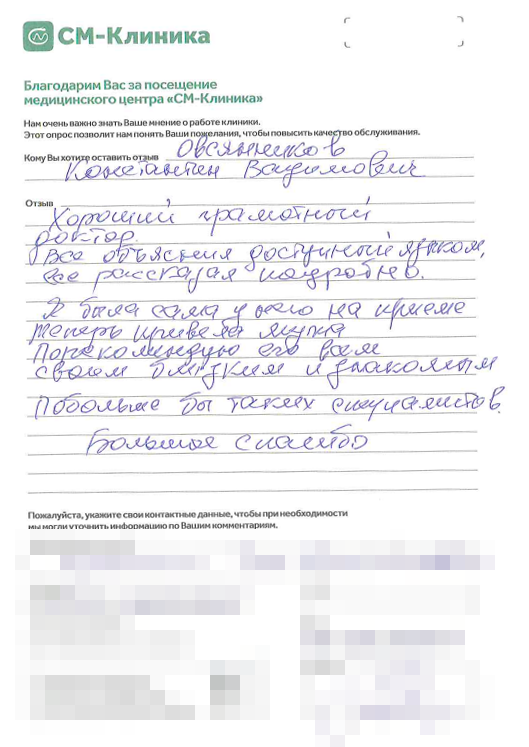 СМ-Клиника
Благодарим Вас за посещение
медицинского центра «СМ-Клиника»
Нам очень важно знать Ваше мнение о работе клиники.
Этот опрос позволит нам понять Ваши пожелания, чтобы повысить качество обслуживания.
Кому Вы хотите оставить отзыв Овсянников
Константин Вадимович
Отзыв
Хороший грамотный
доктор.
Все объяснил доступный языком,
все рассказал подробно.
Я была сама у него на приеме
теперь привела мужа
Порекомендую его всем
своим близким и знакомым
Побольше бы таких специалистов.
Большое спасибо
Пожалуйста, укажите свои контактные данные, чтобы при необходимости
мы могли уточнить информацию по Вашим комментариям.